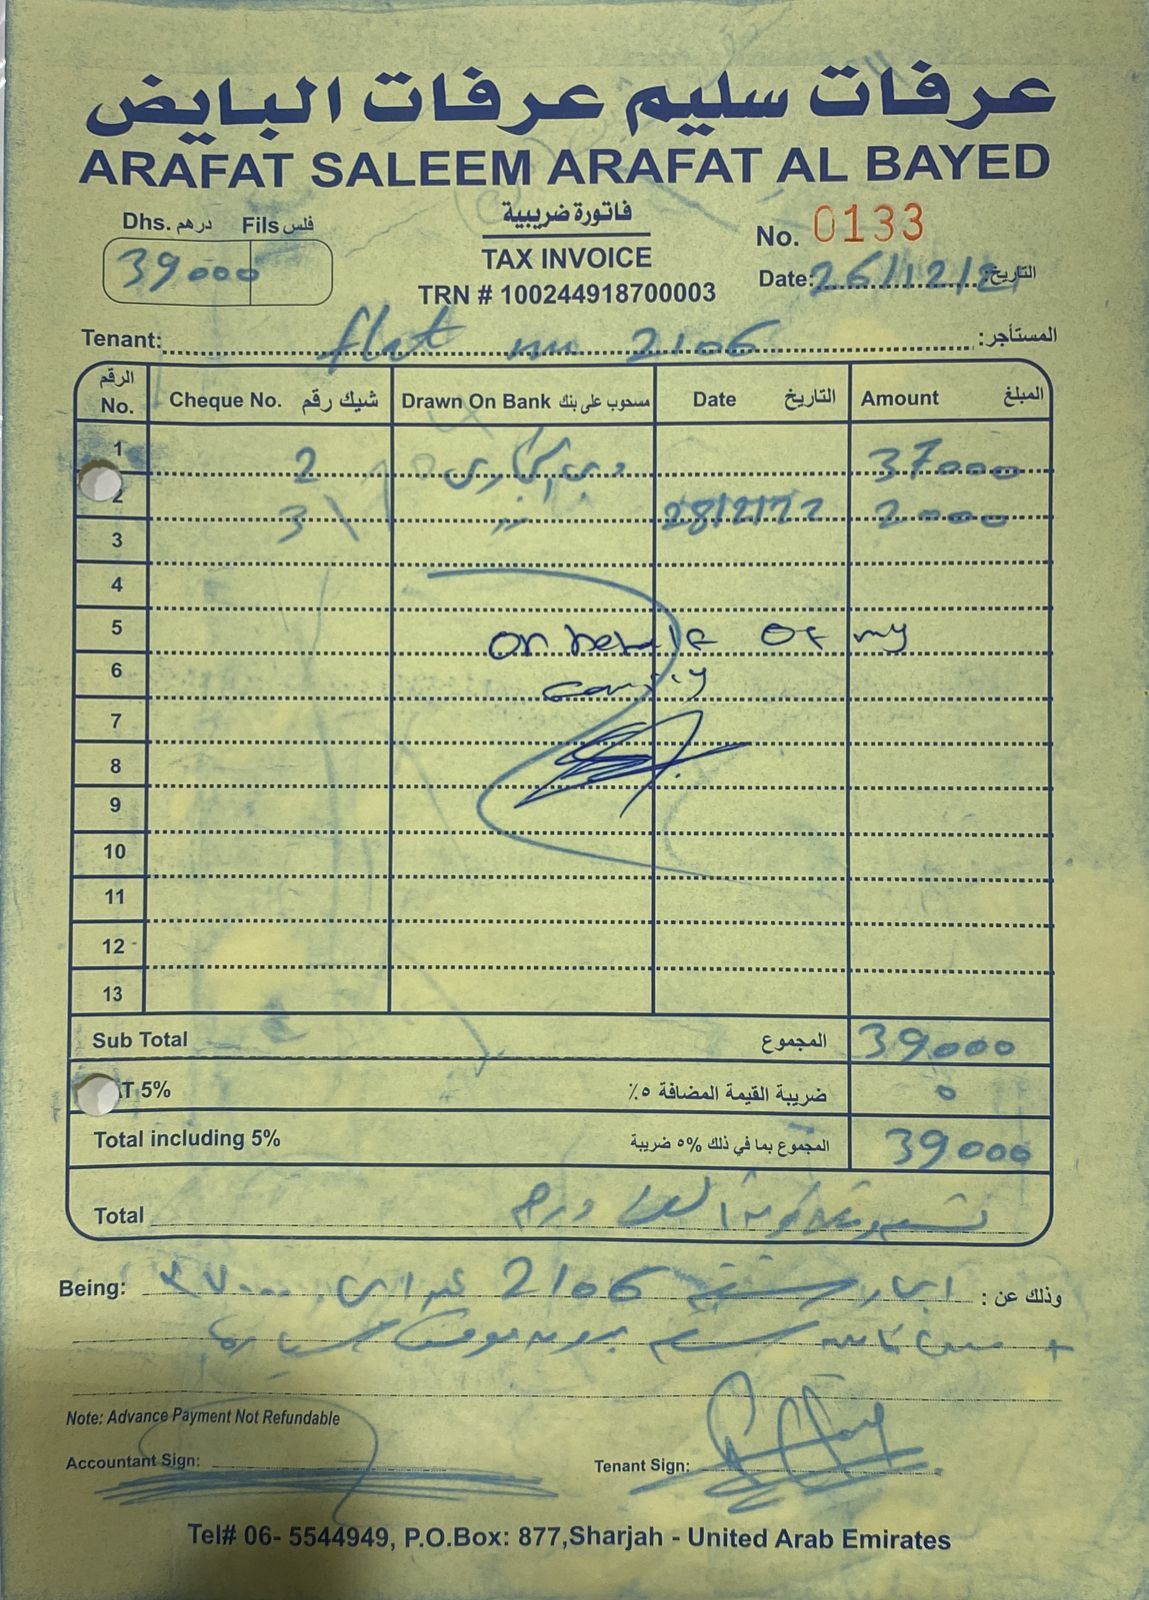 عرفات سليم عرفات البايض
ARAFAT SALEEM ARAFAT AL BAYED
Dhs. درهم Fils فلس
39000
فاتورة ضريبية
TAX INVOICE
TRN # 100244918700003
No. 0133
Date: 26/12/21 التاريخ:
Tenant: flat 2106 المستأجر:
الرقم No. Cheque No. شيك رقم Drawn On Bank مسحوب على بنك Date التاريخ Amount المبلغ
1 2 دبي التجاري 37000
2 3 " 28/2/22 2000
3
4
5 on behalf of my
6
7
8
9
10
11
12
13
Sub Total المجموع 39000
5% ضريبة القيمة المضافة ٥٪ 0
Total including 5% المجموع بما في ذلك ٥% ضريبة 39000
Total درهم
Being: ايجار شقة 2106 ٣٧٠٠٠ وذلك عن :
+
Note: Advance Payment Not Refundable
Accountant Sign:
Tenant Sign:
Tel# 06- 5544949, P.O.Box: 877,Sharjah - United Arab Emirates